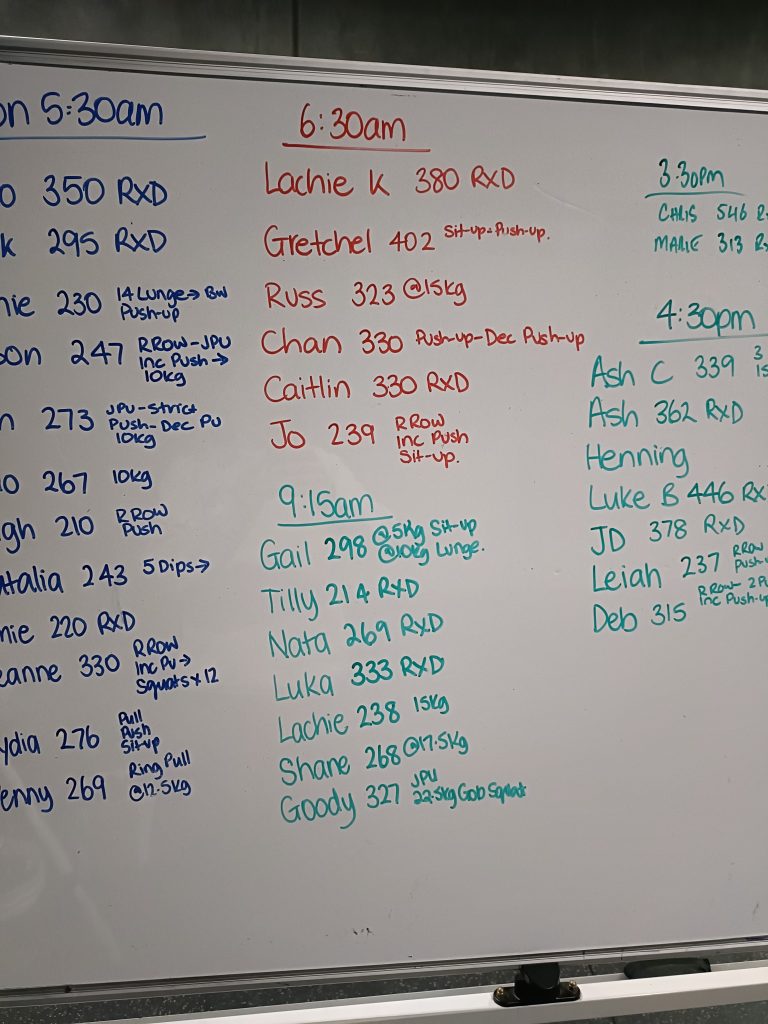 on 5:30am
o 350 RXD
k 295 RXD
nie 230 14 Lunge → BW
Push-up
son 247 RROW-JPU
Inc Push →
10kg
n 273 JPU-Strict
Push-Dec PU
10kg
o 267 10kg
gh 210 RROW
Push
atalia 243 5 Dips →
nie 220 RXD
eanne 330 RROW
Inc PU →
Squats x 12
ydia 276 Pull
Push
Sit-up
enny 269 Ring Pull
@12.5kg
6:30am
Lachie K 380 RXD
Gretchel 402 Sit-up-Push-up.
Russ 323 @15kg
Chan 330 Push-up-Dec Push-up
Caitlin 330 RXD
Jo 239 RROW
Inc Push
Sit-up.
9:15am
Gail 298 @5kg Sit-up
@10kg Lunge.
Tilly 214 RXD
Nata 269 RXD
Luka 333 RXD
Lachie 238 15kg
Shane 268 @17.5kg
Goody 327 JPU
22.5kg Gob Squat
3:30pm
CHRIS 546 R
MARIE 313 R
4:30pm
Ash C 339 3
15
Ash 362 RXD
Henning
Luke B 446 RX
JD 378 RXD
Leiah 237 RROW
Push-u
Deb 315 RROW- 2 Pu
Inc Push-up